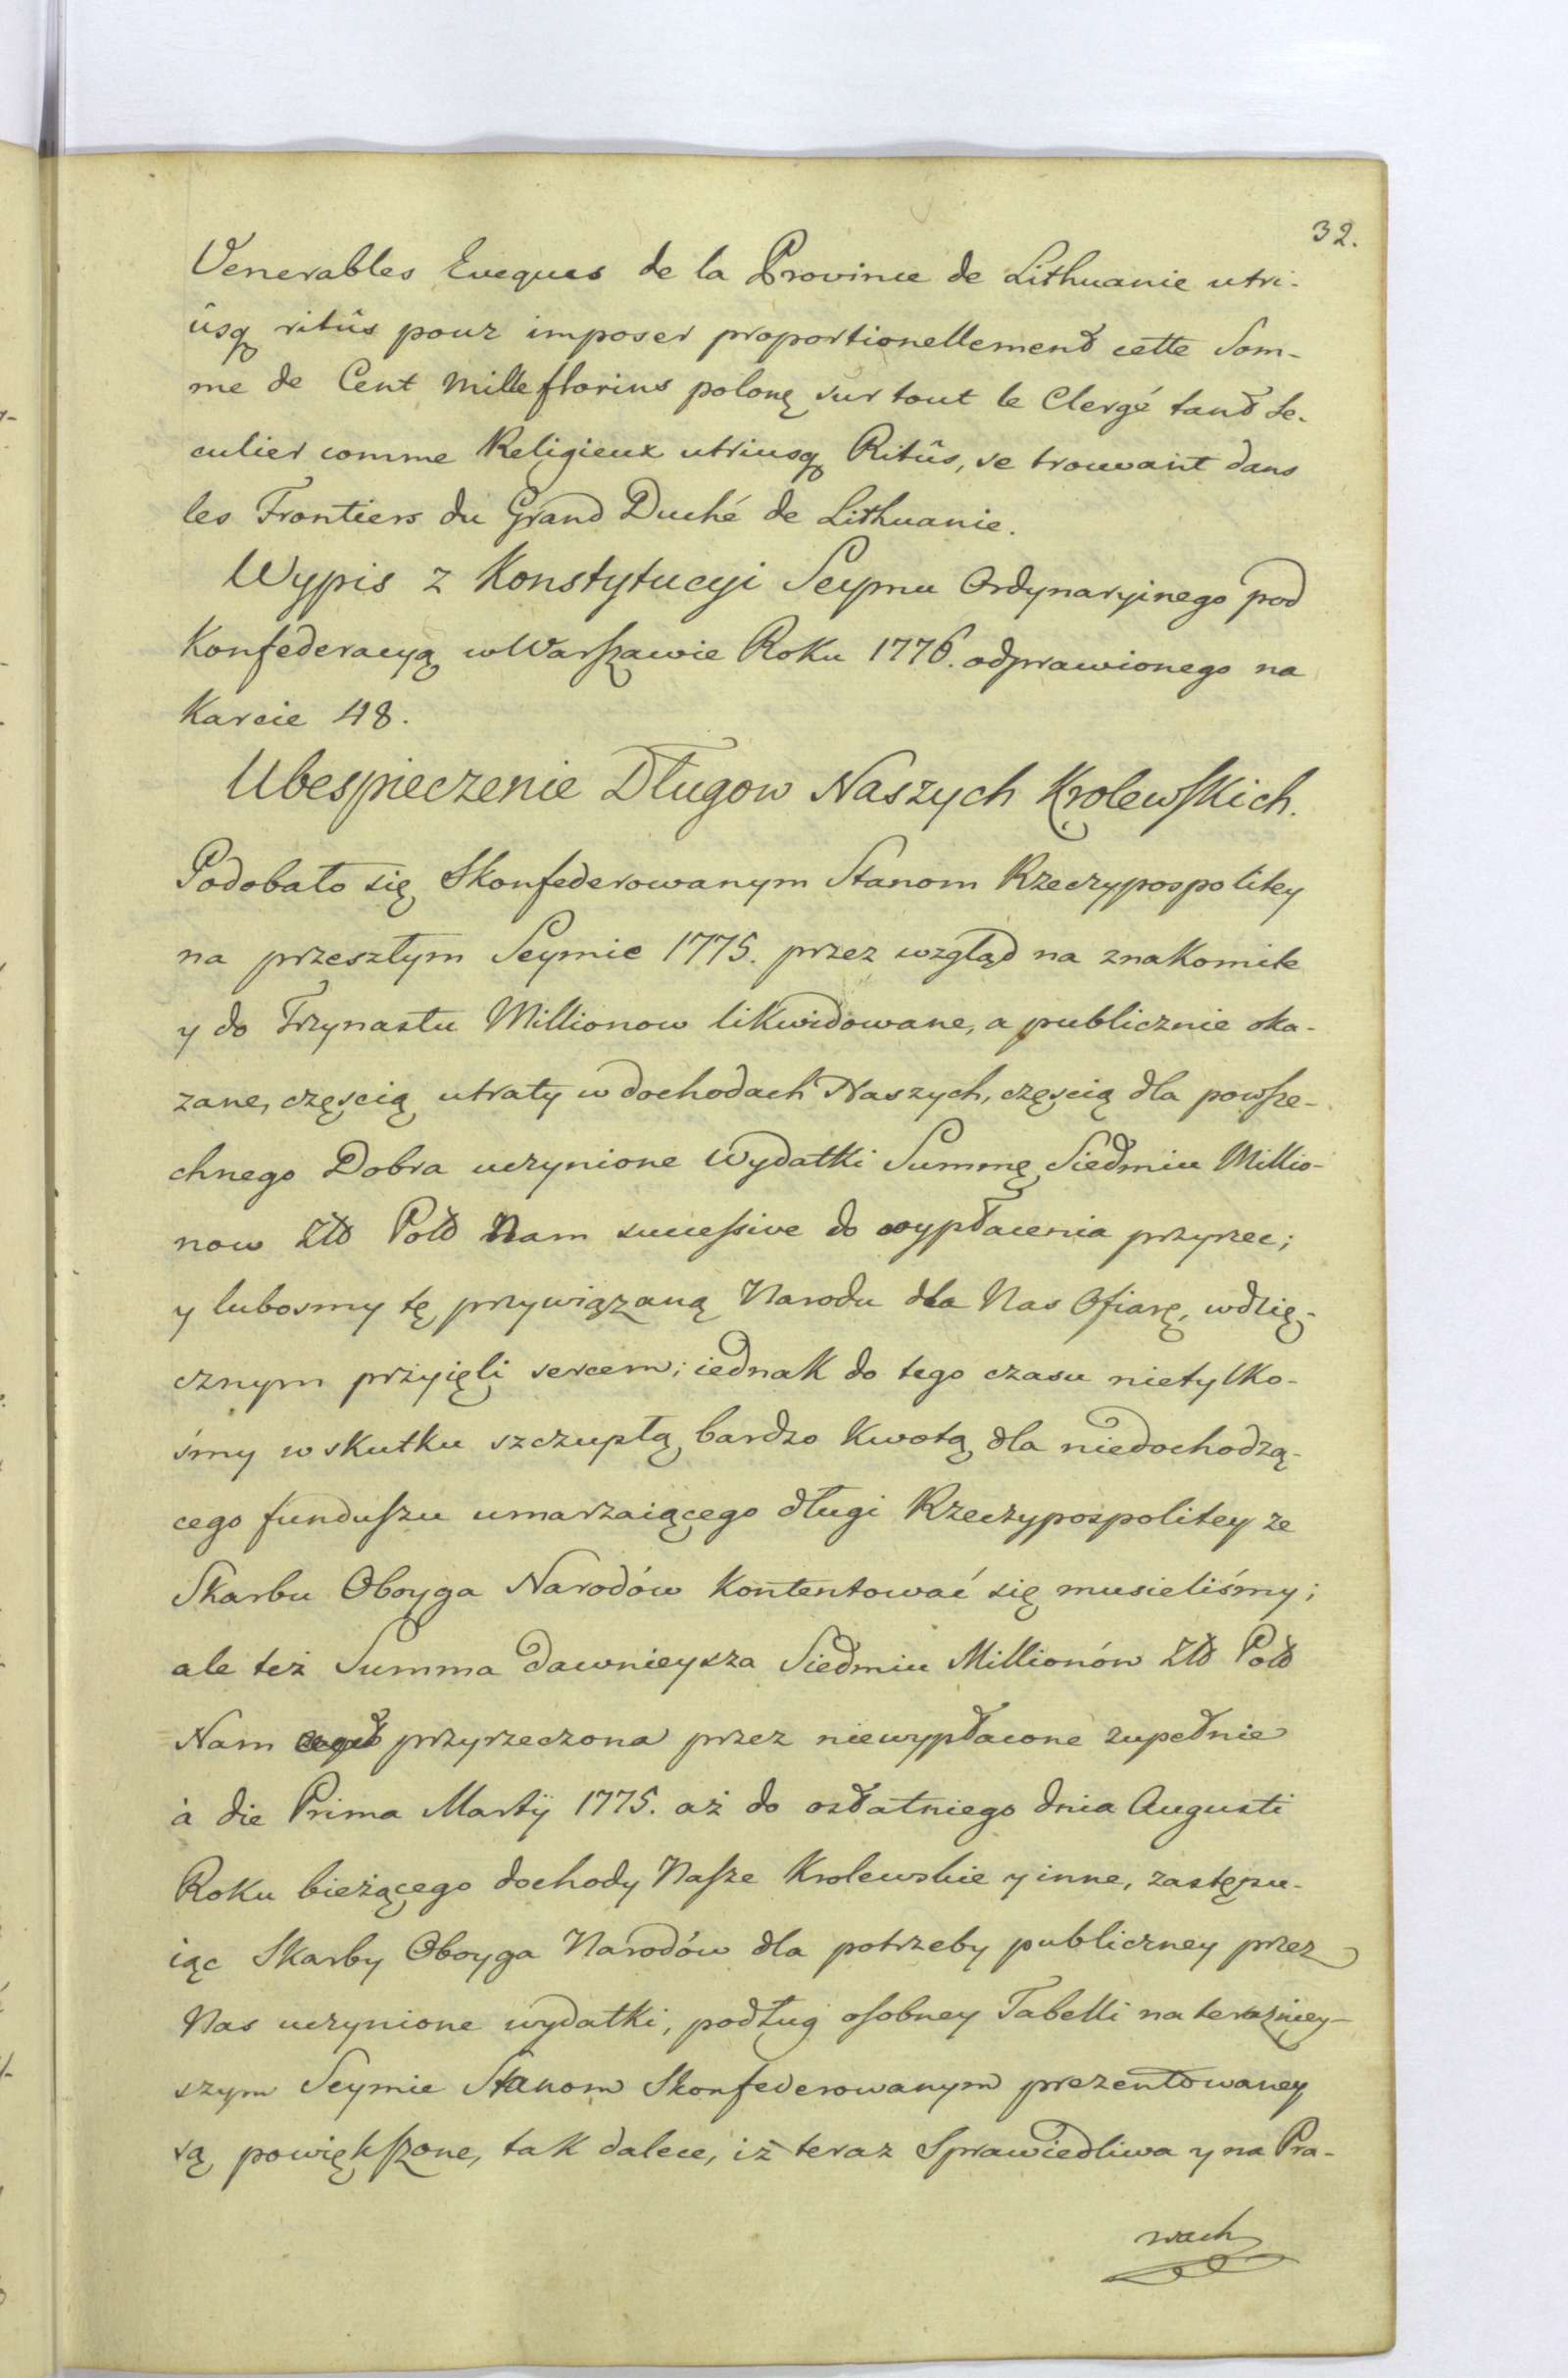 32.
Venerables Eveques de la Province de Lithuanie utri-
ûsq ritûs pour imposer proportionellement cette Som-
me de Cent Mille florins polonę sur tout le Clergé tant Se-
culier comme Religieux utriusq Ritûs, se trouvant dans
les Frontiers du Grand Duché de Lithuanie.
Wypis z Konstytucyi Seymu Ordynaryinego pod
Konfederacyą w Warszawie Roku 1776. odprawionego na
Karcie 48.
Ubespieczenie Długow Naszych Krolewskich.
Podobało się Skonfederowanym Stanom Rzeczypospolitey
na przeszłym Seymie 1775. przez wzgląd na znakomite
y do Trzynastu Millionow likwidowane, a publicznie oka-
zane, częścią utraty w dochodach Naszych, częścią dla powsze-
chnego Dobra uczynione Wydatki Summę Siedmiu Millio-
now Zło Pol Nam successive do wypłacenia przyrzec;
y lubosmy tę przywiązaną Narodu dla Nas Ofiarę, wdzię-
cznym przyięli sercem; iednak do tego czasu nietylko-
śmy w skutku szczupłą bardzo Kwotą dla niedochodzą-
cego funduszu umarzaiącego długi Rzeczypospolitey ze
Skarbu Oboyga Narodów Kontentować się musieliśmy;
ale też Summa dawnieysza Siedmiu Millionów Zło Pol
Nam przyrzeczona przez niewypłacone zupełnie
à die Prima Martÿ 1775. aż do ostatniego dnia Augusti
Roku bieżącego dochody Nasze Krolewskie y inne, zastępu-
iąc Skarby Oboyga Narodów dla potrzeby publiczney przez
Nas uczynione wydatki, podług osobney Tabelli na teraźniey-
szym Seymie Stanom Skonfederowanym prezentowaney
są powiększone, tak dalece, iż teraz Sprawiedliwa y na Pra-
wach